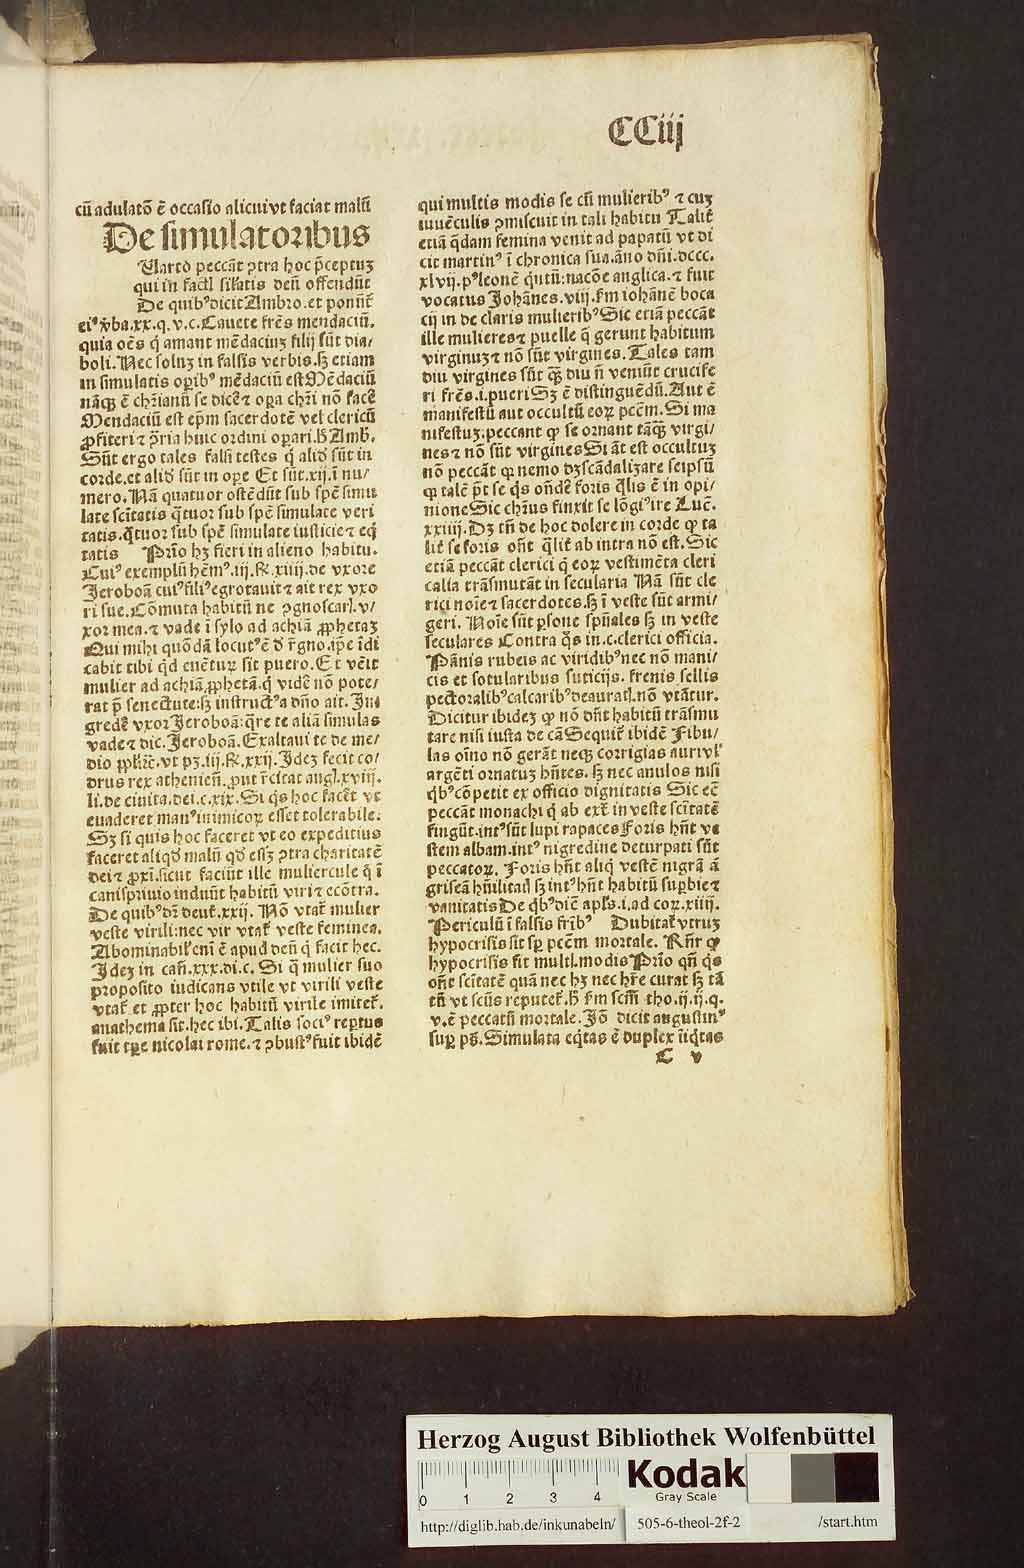 CCiij
cū adulatō ē occasio alicui vt faciat malū
De simulatoribus
Uarto peccāt ꝯtra hoc p̄ceptuꝫ
qui in factꝭ sil̄atis deū offendūt
De quibꝰ dicit Ambro. et ponūt̄
eiꝰ v̄ba.xx.q.v.c. Cauete fr̄es mendaciū.
quia oēs q̄ amant mēdaciuꝫ filij sūt dia/
boli. Nec solū in falsis verbis. sꝫ etiam
in simulatis oꝑibꝰ mēdaciū est Mēdaciū
nāqꝫ ē chr̄ianū se dicē t̄ oꝑa chr̄i nō facē
Mendaciū est ep̄m sacerdotē vel clericū
ꝓfiteri ⁊ ꝯ̄ria huic ordini oꝑari. h̄ Amb̄.
Sūt ergo tales falsi testes q̄ aliqd̄ sūt in
corde. et aliqd̄ sūt in oꝑe Et sūt.xij. ī nu/
mero. Nā quatuor ostēdūt sub spē simu
late scītatis q̄tuor sub spē simulate veri
tatis. q̄tuor sub spē simulate iusticie ⁊ eq̄
tatis Prīo hꝫ fieri in alieno habitu.
Cuiꝰ exemplū hēmꝰ.iij.R.xiiij. de vxore
Jeroboā cuiꝰ filiꝰ egrotauit ⁊ ait rex vxo
ri sue. Cōmuta habitū ne ꝯgnoscarꝭ. ꝙ/
xor mea. ⁊ vade ī sylo ad achiā ꝓphetaꝫ
Qui mihi quōdā locutꝰ ē d̄ r̄gno. ip̄e īdi
cabit tibi qd̄ euētur sit puero. Et vēit
mulier ad achiā ꝓphetā. q̄ vidē nō pote/
rat p̄ senectute: sꝫ instructꝰ a dn̄o ait. In
gredē vxor Jeroboā: q̄re te aliā simulas
vade ⁊ dic. Jeroboā. Exaltaui te de me/
dio pp̄lī ⁊c. vt pꝫ.iij.R.xxij. Ideꝫ fecit co/
drus rex atheniēn. ꝓut r̄citat augꝭ.xviij.
li. de ciuita. dei.c.xix. Si q̄s hoc facēt vt
euaderet manꝰ inimicoꝝ esset tolerabile.
Sꝫ si quis hoc faceret vt eo expeditius
faceret aliqd̄ malū qd̄ esꝫ ꝯtra charitatē
dei ⁊ ꝓxī. sicut faciūt ille muliercule q̄ ī
canispriuio induūt habitū viri ⁊ ecōtra.
De quibꝰ dī deut̄.xxij. Nō vtat̄ mulier
veste virili: nec vir vtat̄ veste feminea.
Abominabil̄ cnī ē apud deū q̄ facit hec.
Idez in cañ.xxx.di.c. Si q̄ mulier suo
proposito iudicans vtile vt virili veste
vtat̄ et ꝓpter hoc habitū virile imitet̄.
anathema sit. hec ibi. Talis sociꝰ reꝑtus
fuit tꝑe nicolai rome. ⁊ ꝯbustꝰ fuit ibidē
qui multis modis se cū mulieribꝰ ⁊ cuꝫ
iuuēculis ꝯmiscuit in tali habitu Talit̄
etiā q̄dam femina venit ad papatū vt di
cit martinꝰ ī chronica sua. āno dn̄i. dccc.
xlvij. pꝰ leonē q̄ntū: nacōe anglica. ⁊ fuit
vocatus Johānes.viij. s̄m iohānē boca
cij in de claris mulieribꝰ Sic etiā peccāt
ille mulieres ⁊ puelle q̄ gerunt habitum
virginuꝫ ⁊ nō sūt virgines. Tales tam
diu virgines sūt qꝫ̄ diu n̄ veniūt crucife
ri fr̄es. i. pueri Sꝫ ē distinguēdū. Aut ē
manifestū aut occultū eoꝝ pc̄m. Si ma
nifestuꝫ: peccant ꝙ se ornant tāqꝫ̄ virgi/
nes ⁊ nō sūt virgines Si āt est occultuꝫ
nō peccāt qꝛ nemo dꝫ scādalizare seipsū
ꝙ talē p̄t se q̄s on̄dē foris q̄lis ē in opi/
nione Sic chr̄us finxit se lōgiꝰ ire Luc̄.
xxiiij. Dꝫ tn̄ de hoc dolere in corde ꝙ ta
lit̄ se foris on̄t q̄lit̄ ab intra nō est. Sic
etiā peccāt clerici q̄ eoꝝ vestimēta cleri
calia trāsmutāt in secularia Nā sūt cle
rici noīe ⁊ sacerdotes. sꝫ ī veste sūt armi/
geri. Noīe sūt ꝑsone spūales sꝫ in veste
seculares Contra q̄s in.c.clerici officia.
Pānis rubeis ac viridibꝰ nec nō mani/
cis et sotularibus suticijs. frenis sellis
pectoralibꝰ calcaribꝰ deauratꝭ. nō vtātur.
Dicitur ibideꝫ ꝙ nō dn̄t habitū trāsmu
tare nisi iusta de cā Sequit̄ ibidē Fibu/
las oīno nō gerāt neqꝫ corrigias auri vl̄
argēti ornatuꝫ hn̄tes. sꝫ nec anulos nisi
q̄bꝰ cōpetit ex officio dignitatis Sic ec̄
peccāt monachi q̄ ab ext̄ in veste scītatē
fingūt. intꝰ sūt lupi rapaces Foris hn̄t ve
stem albam. intꝰ nigredine deturpati sūt
peccatoꝝ. Foris hn̄t aliq̄ vestē nigrā ā
griseā hūilitatꝭ sꝫ intꝰ hn̄t habitū suꝑbie ⁊
vanitatis De q̄bꝰ dic̄ apl̄s.i.ad coꝝ.xiiij.
Periculū ī falsis fr̄ibꝰ Dubitat̄ vtruꝫ
hypocrisis sit sꝑ pc̄m mortale. Rn̄r ꝙ
hypocrisis fit multꝭ. modis Prīo qn̄ q̄s
on̄t scītatē quā nec hꝫ nec hr̄e curat sꝫ tā
tū vt scūs reputet̄. h̄ s̄m scm̄ tho.ij.ij.q.
v. ē peccatū mortale. Iō dicit augustinꝰ
suꝑ ps̄. Simulata eq̄tas ē duplex iīq̄tas
C v
Herzog August Bibliothek Wolfenbüttel
0 1 2 3 4
Kodak
Gray Scale
http://diglib.hab.de/inkunabeln/ 505-6-theol-2f-2 /start.htm